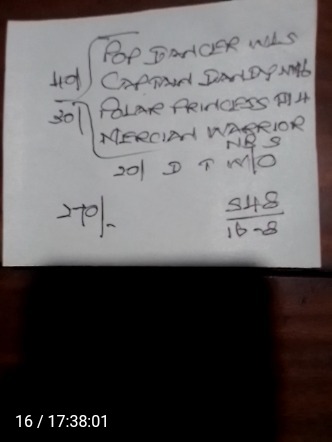 POP DANCER W/S
40/ CAPTAIN DANDY
30/ POLAR PRINCESS
MERCIAN WARRIOR
NBS
20/ D T W/O
270/- 548
16-8
16 / 17:38:01